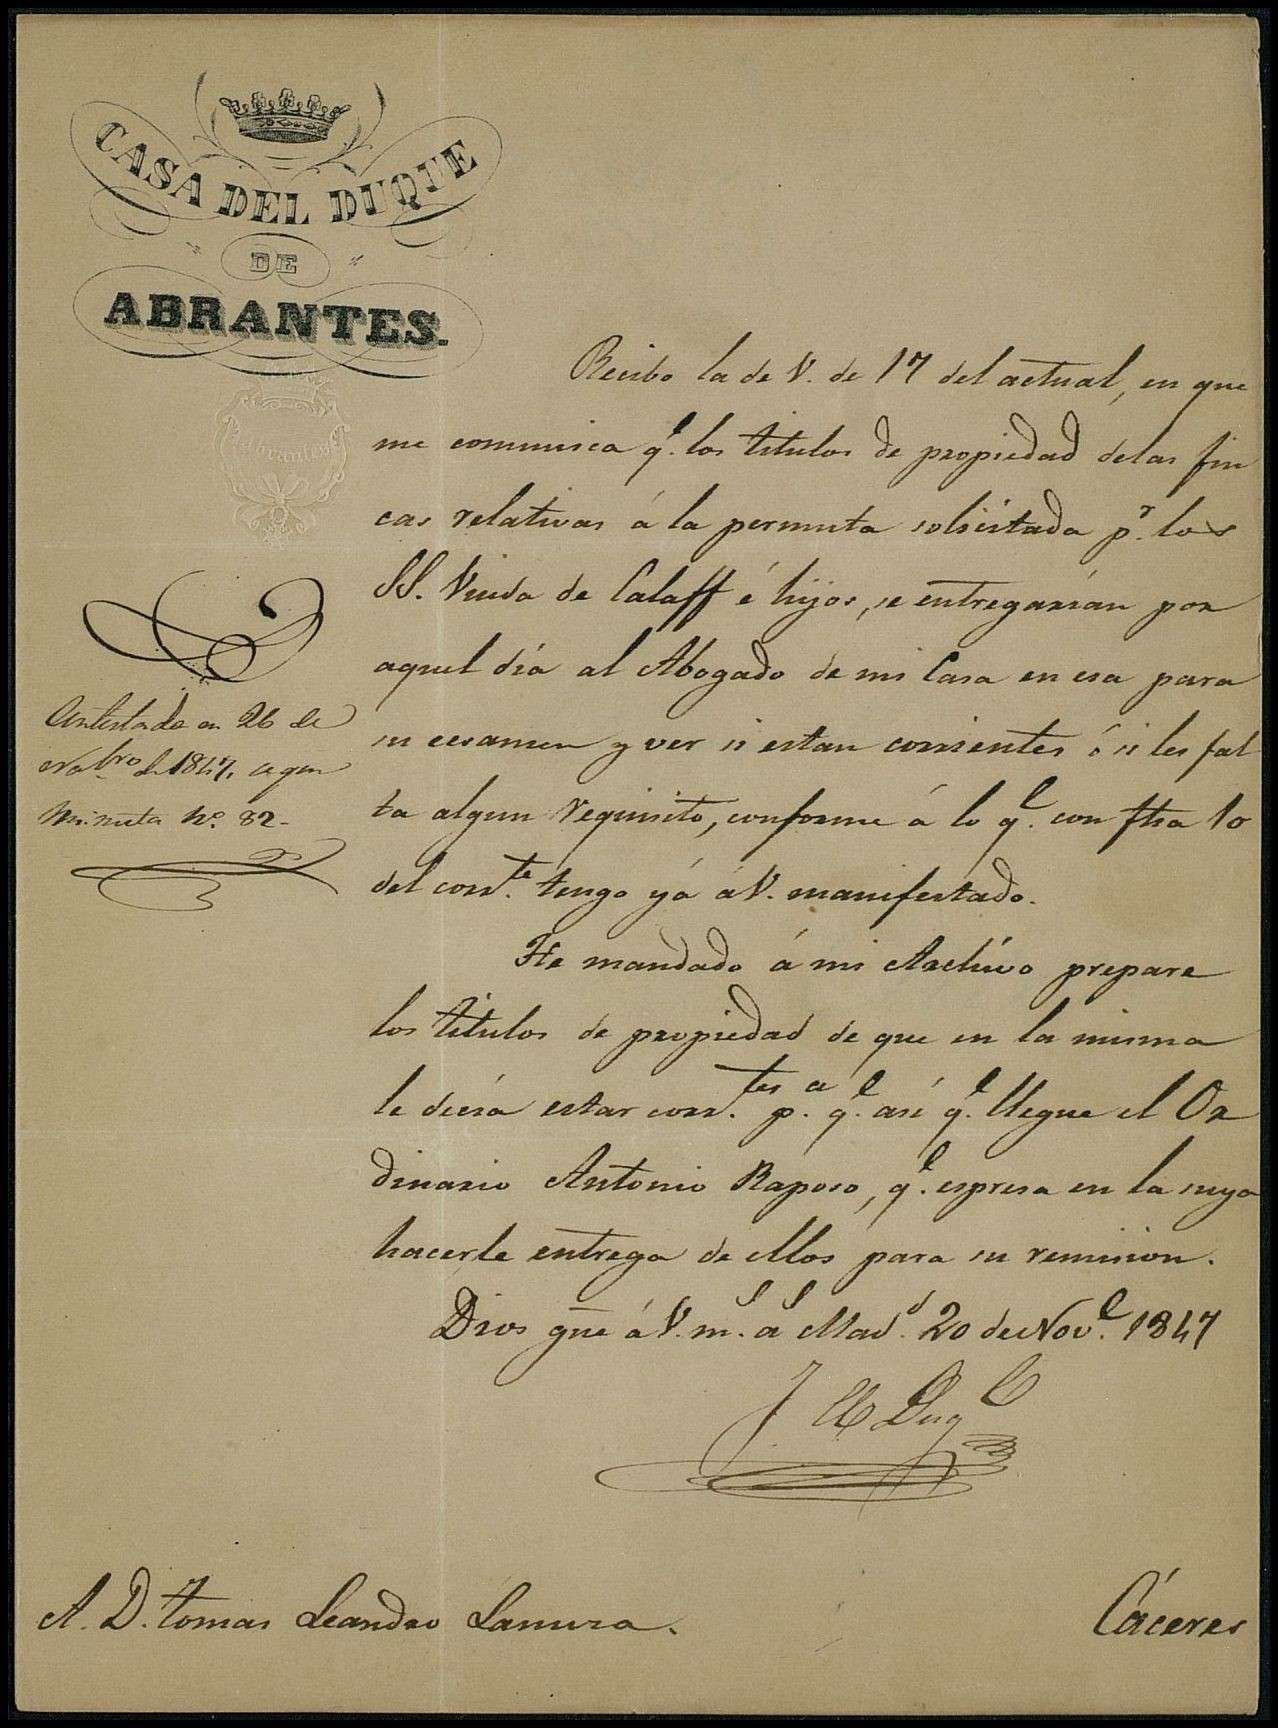 CASA DEL DUQUE
DE
ABRANTES.
Recibo la de V. de 17 del actual, en que
me comunica q.e los titulos de propiedad delas fin
cas relativas á la permuta solicitada p.r los
SS. Viuda de Calaff é hijos, se entregarían por
aquel día al Abogado de mi Casa en esa para
su ecsamen y ver si estan corrientes ó si les fal
ta algun requisito, conforme á lo q.e con fha 10
del corr.te tengo yá á V. manifestado.
He mandado á mi Archivo prepare
los titulos de propiedad de que en la misma
le decía estar corr.tes p.a q.e así q.e llegue el Or
dinario Antonio Raposo, q.e espresa en la suya
hacerle entrega de ellos para su remision.
Dios gue á V. m.s a.s Mad.d 20 de Nov.e 1847
El Duq.e
Contestada en 26 de
Nobro de 1847, segun
Minuta No. 82.
A. D. Tomas Leandro
Cáceres